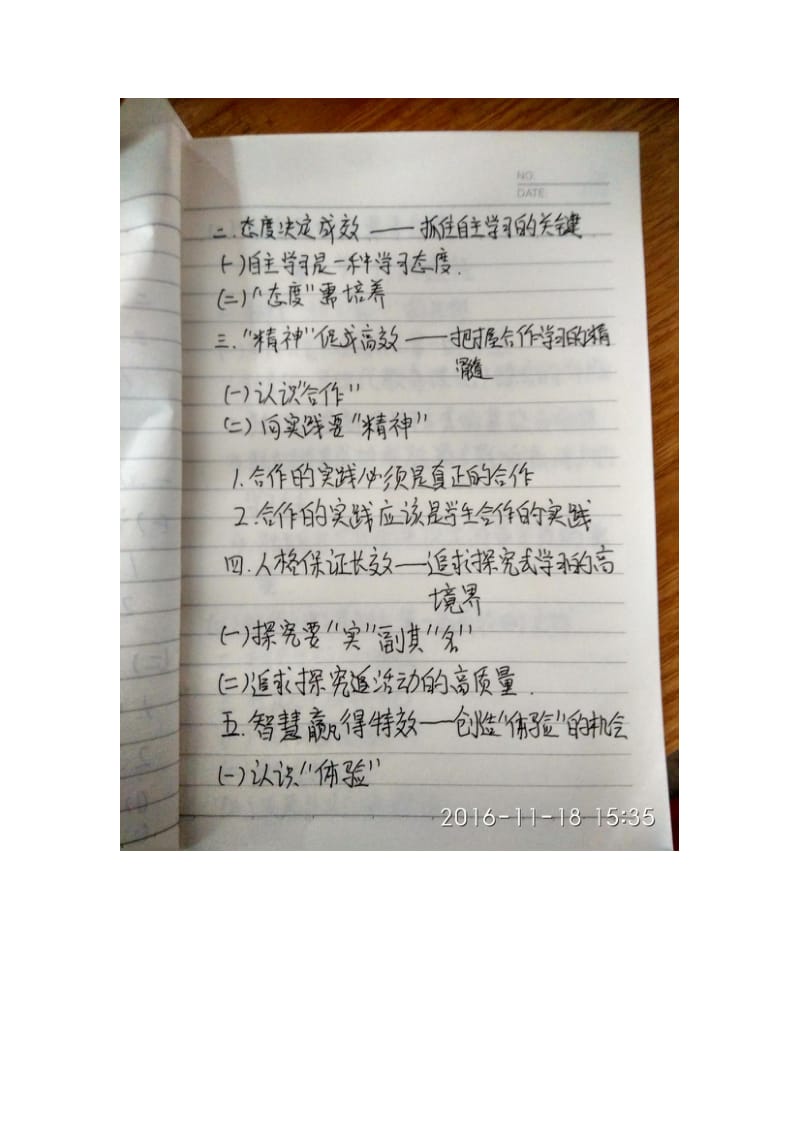 NO.
DATE
二.态度决定成效——抓住自主学习的关键
(一)自主学习是一种学习态度.
(二)“态度”需培养
三.“精神”促成高效——把握合作学习的精
髓
(一)认识“合作”
(二)向实践要“精神”
1.合作的实践必须是真正的合作
2.合作的实践应该是学生合作的实践
四.人格保证长效——追求探究式学习的高
境界
(一)探究要“实”副其“名”
(二)追求探究活动的高质量.
五.智慧赢得特效——创造“体验”的机会
(一)认识“体验”
2016-11-18 15:35